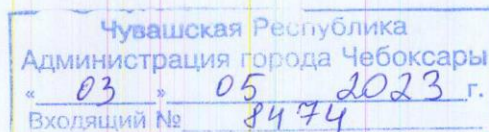 Чувашская Республика
Администрация города Чебоксары
« 03 » 05 2023 г.
Входящий № 8474